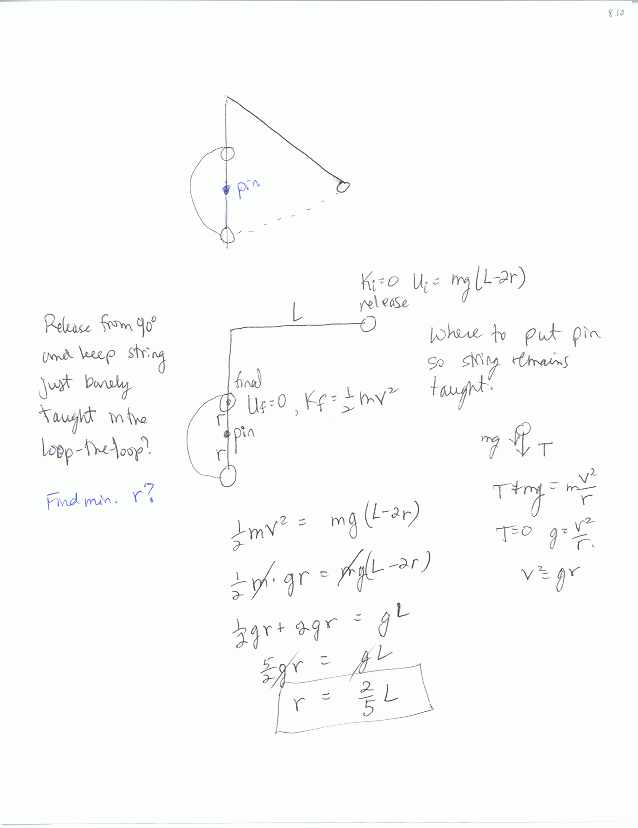 8.10
pin
Ki=0 Ui= mg(L-2r)
release
L
Release from 90°
and keep string
just barely
taught in the
loop-the-loop?
Find min. r?
final
Uf=0, Kf= 1/2 mv²
r
pin
r
Where to put pin
so string remains
taught?
mg T
T+mg = m v²/r
T=0 g= v²/r.
v²= gr
1/2 mv² = mg(L-2r)
1/2 m· gr = mg(L-2r)
1/2 gr + 2gr = gL
5/2 gr = gL
r = 2/5 L